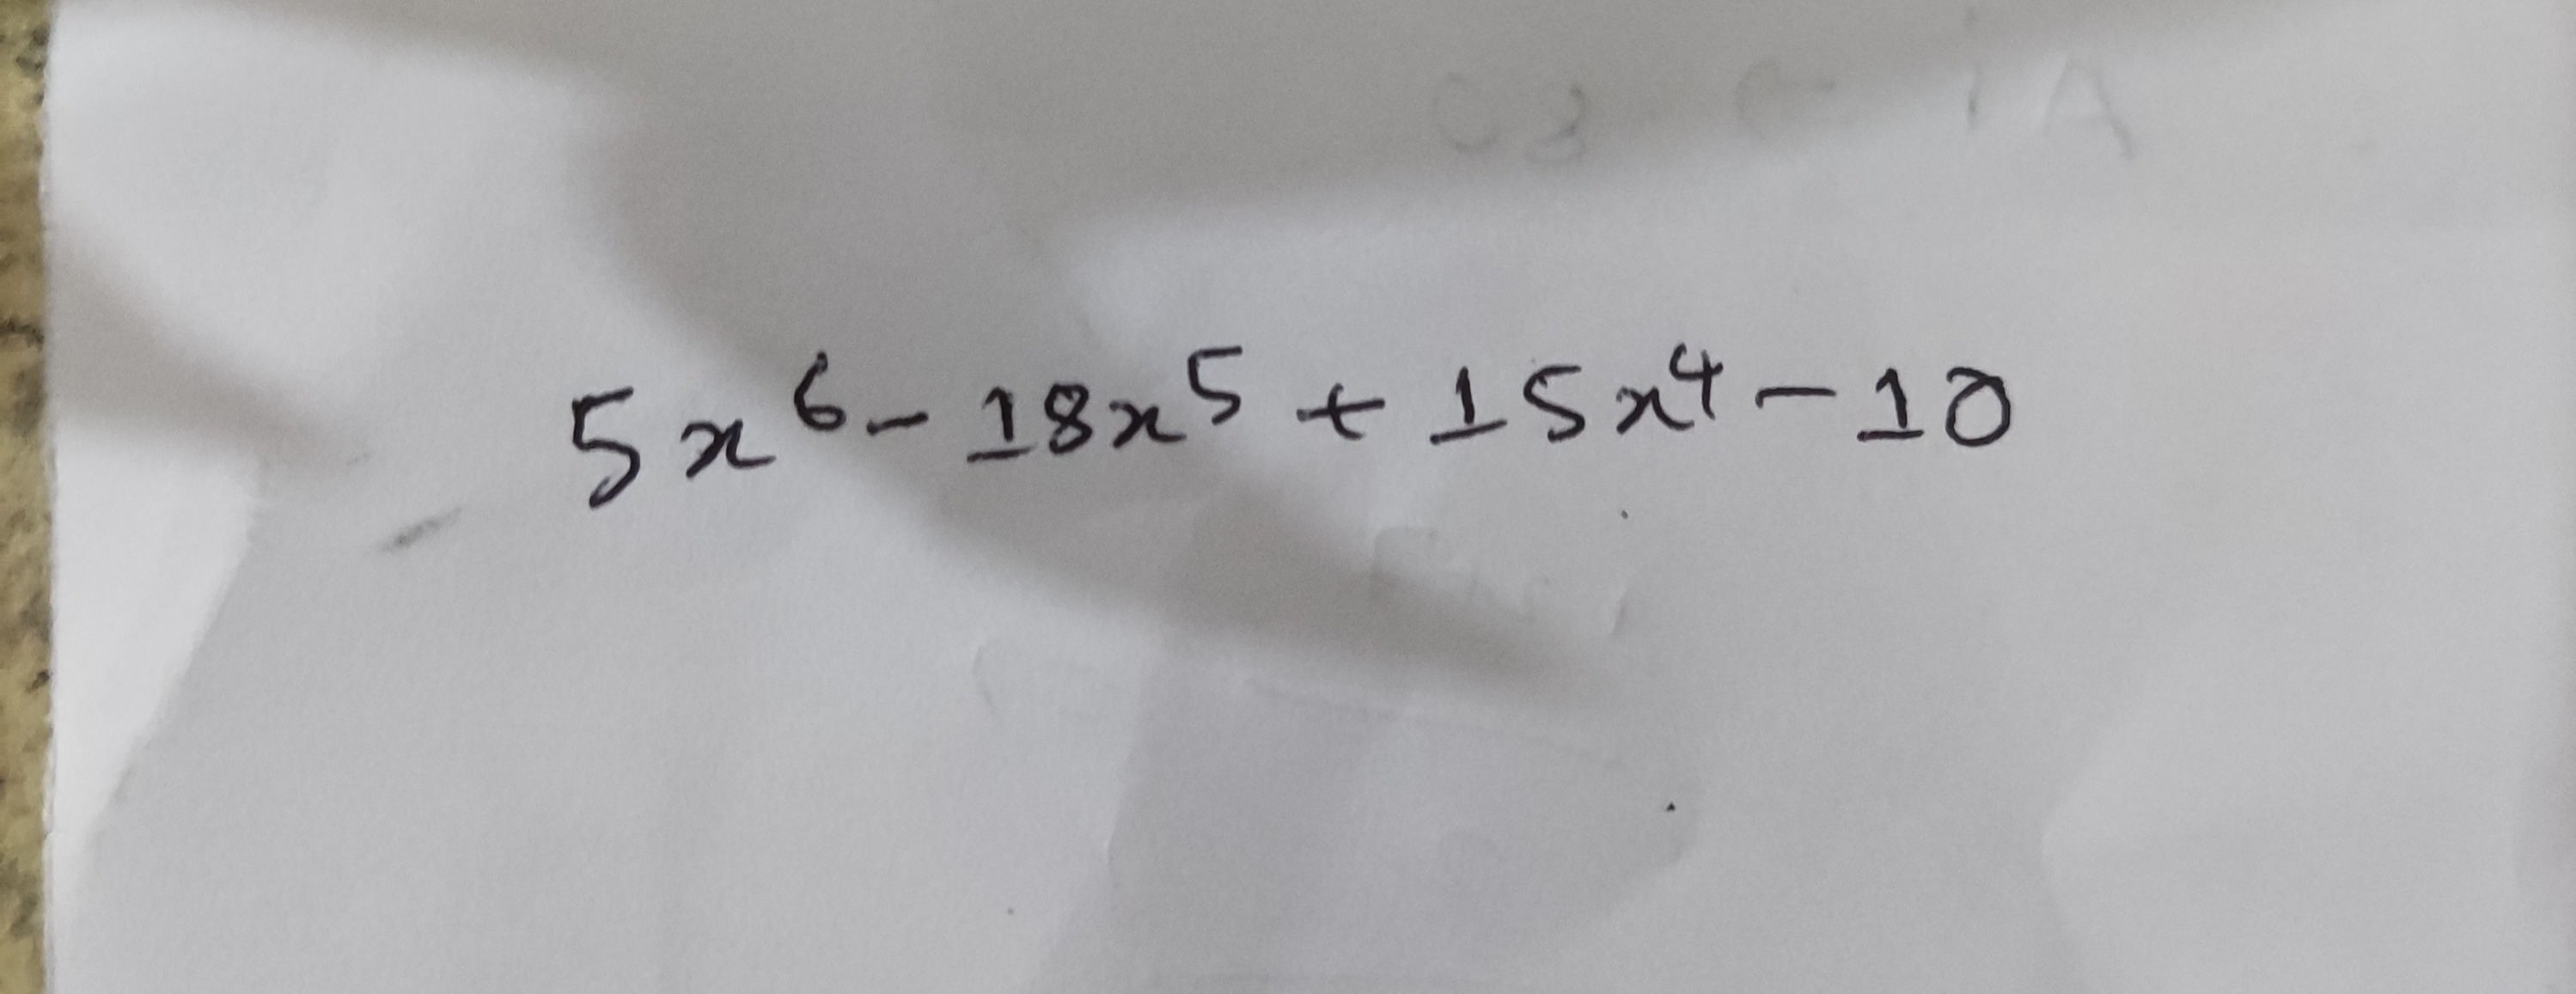 5x⁶ - 18x⁵ + 15x⁴ - 10